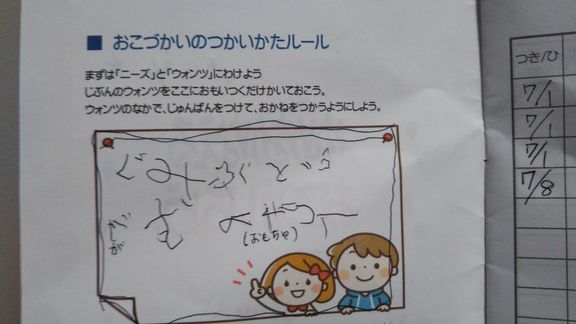 ■ おこづかいのつかいかたルール
まずは「ニーズ」と「ウォンツ」にわけよう
じぶんのウォンツをここにおもいつくだけかいておこう。
ウォンツのなかで、じゅんばんをつけて、おかねをつかうようにしよう。
ぐみ ぶどう
(おもちゃ)
つき/ひ
7/1
7/1
7/1
7/8